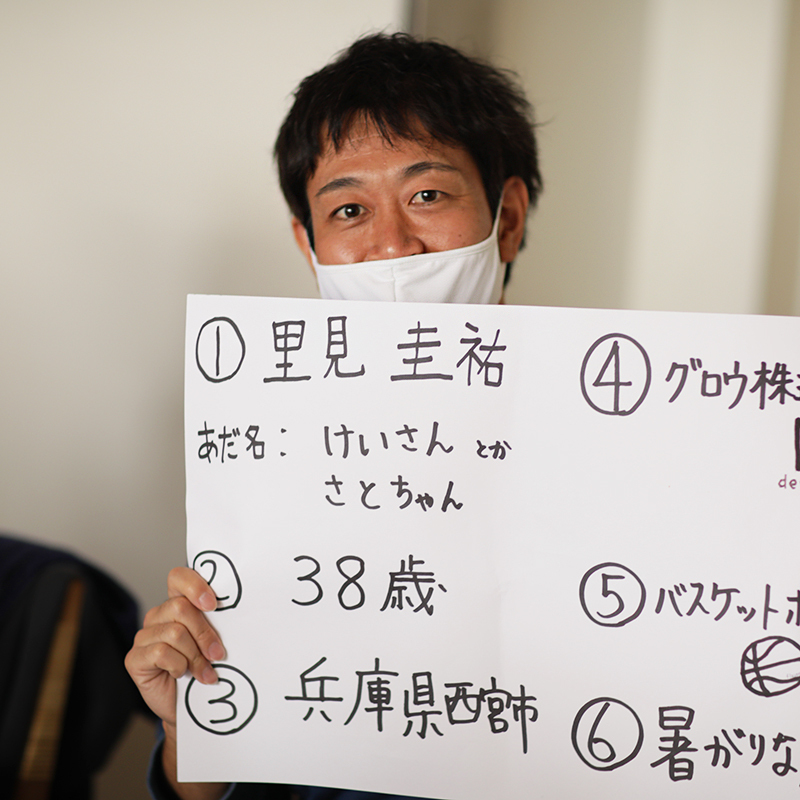 ① 里見 圭祐
あだ名： けいさん とか
さとちゃん
② 38歳
③ 兵庫県西宮市
④ グロウ株
de
⑤ バスケット
⑥ 暑がりな